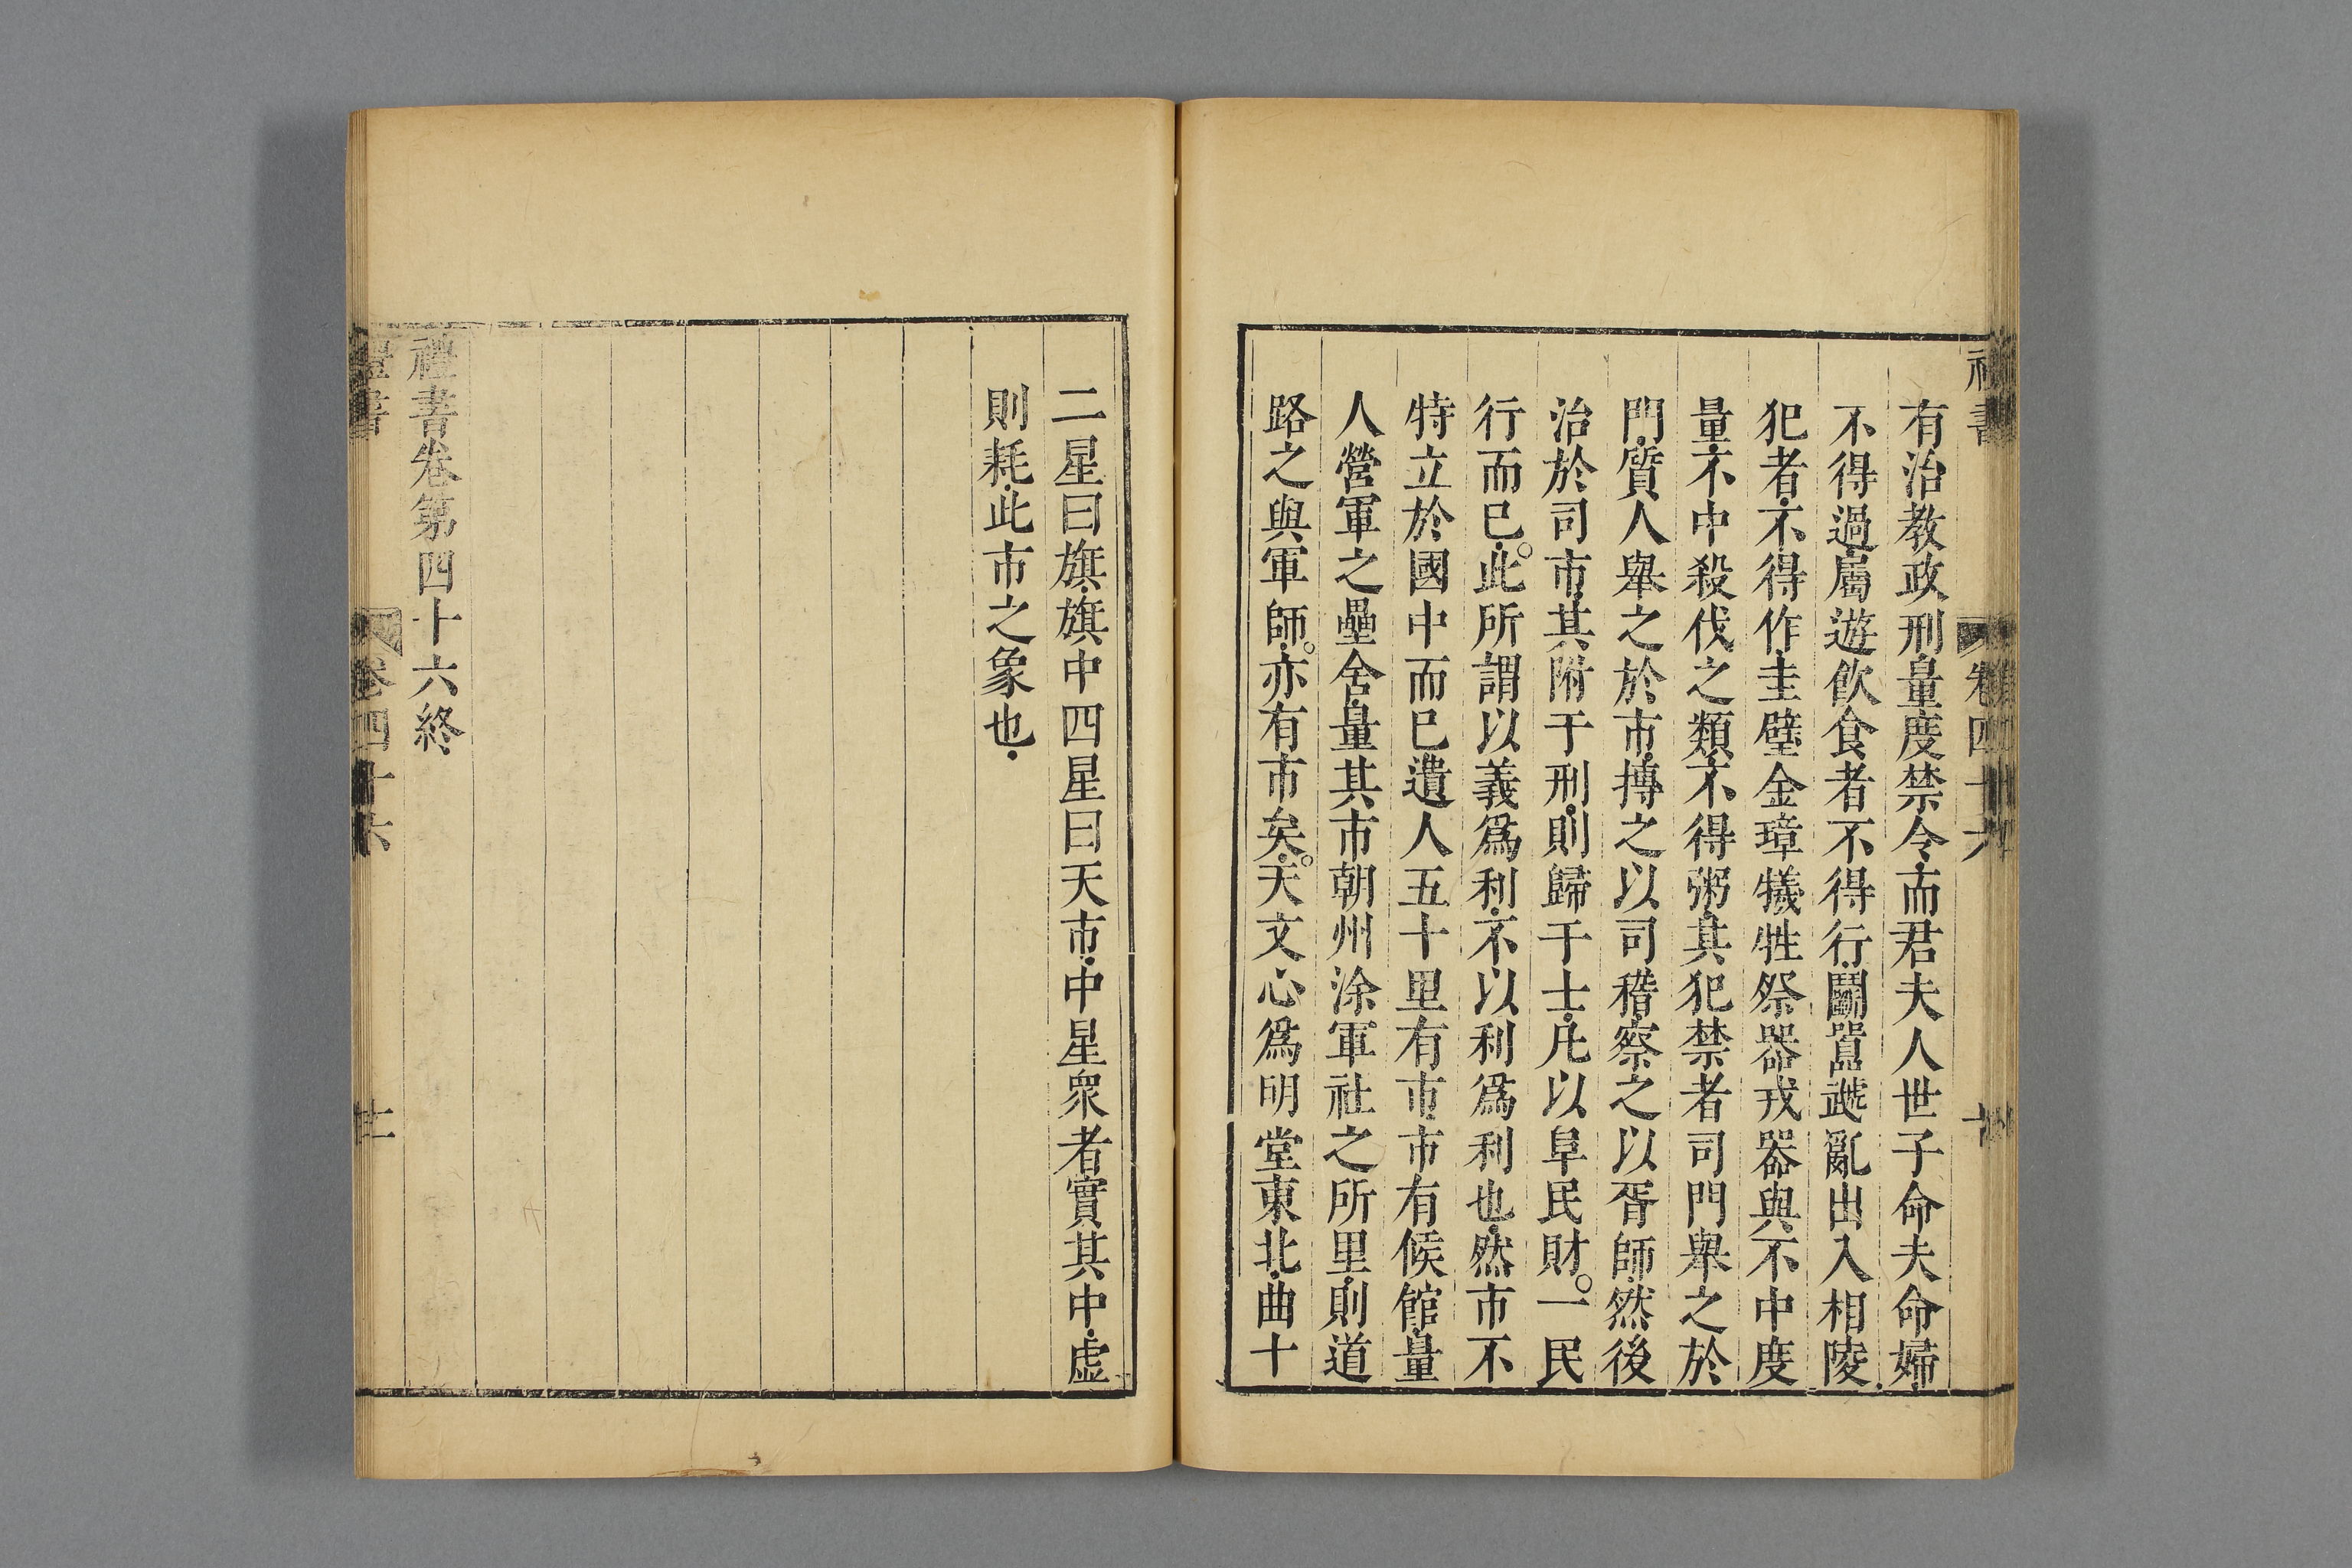 有治教政刑量度禁令而君夫人世子命夫命婦
不得過屬遊飲食者不得行鬬嚻虣亂出入相陵
犯者不得作圭璧金璋犧牲祭器戎器與不中度
量不中殺伐之類不得粥其犯禁者司門舉之於
門質人舉之於市摶之以司稽察之以胥師然後
治於司市其附于刑則歸于士凡以阜民財一民
行而已此所謂以義爲利不以利爲利也然市不
特立於國中而已遺人五十里有市市有候館量
人營軍之壘舍量其市朝州涂軍社之所里則道
路之與軍師亦有市矣天文心爲明堂東北曲十
二星曰旗旗中四星曰天市中星衆者實其中虛
則耗此市之象也
禮書卷第四十六終
禮書 卷四十六 廿一